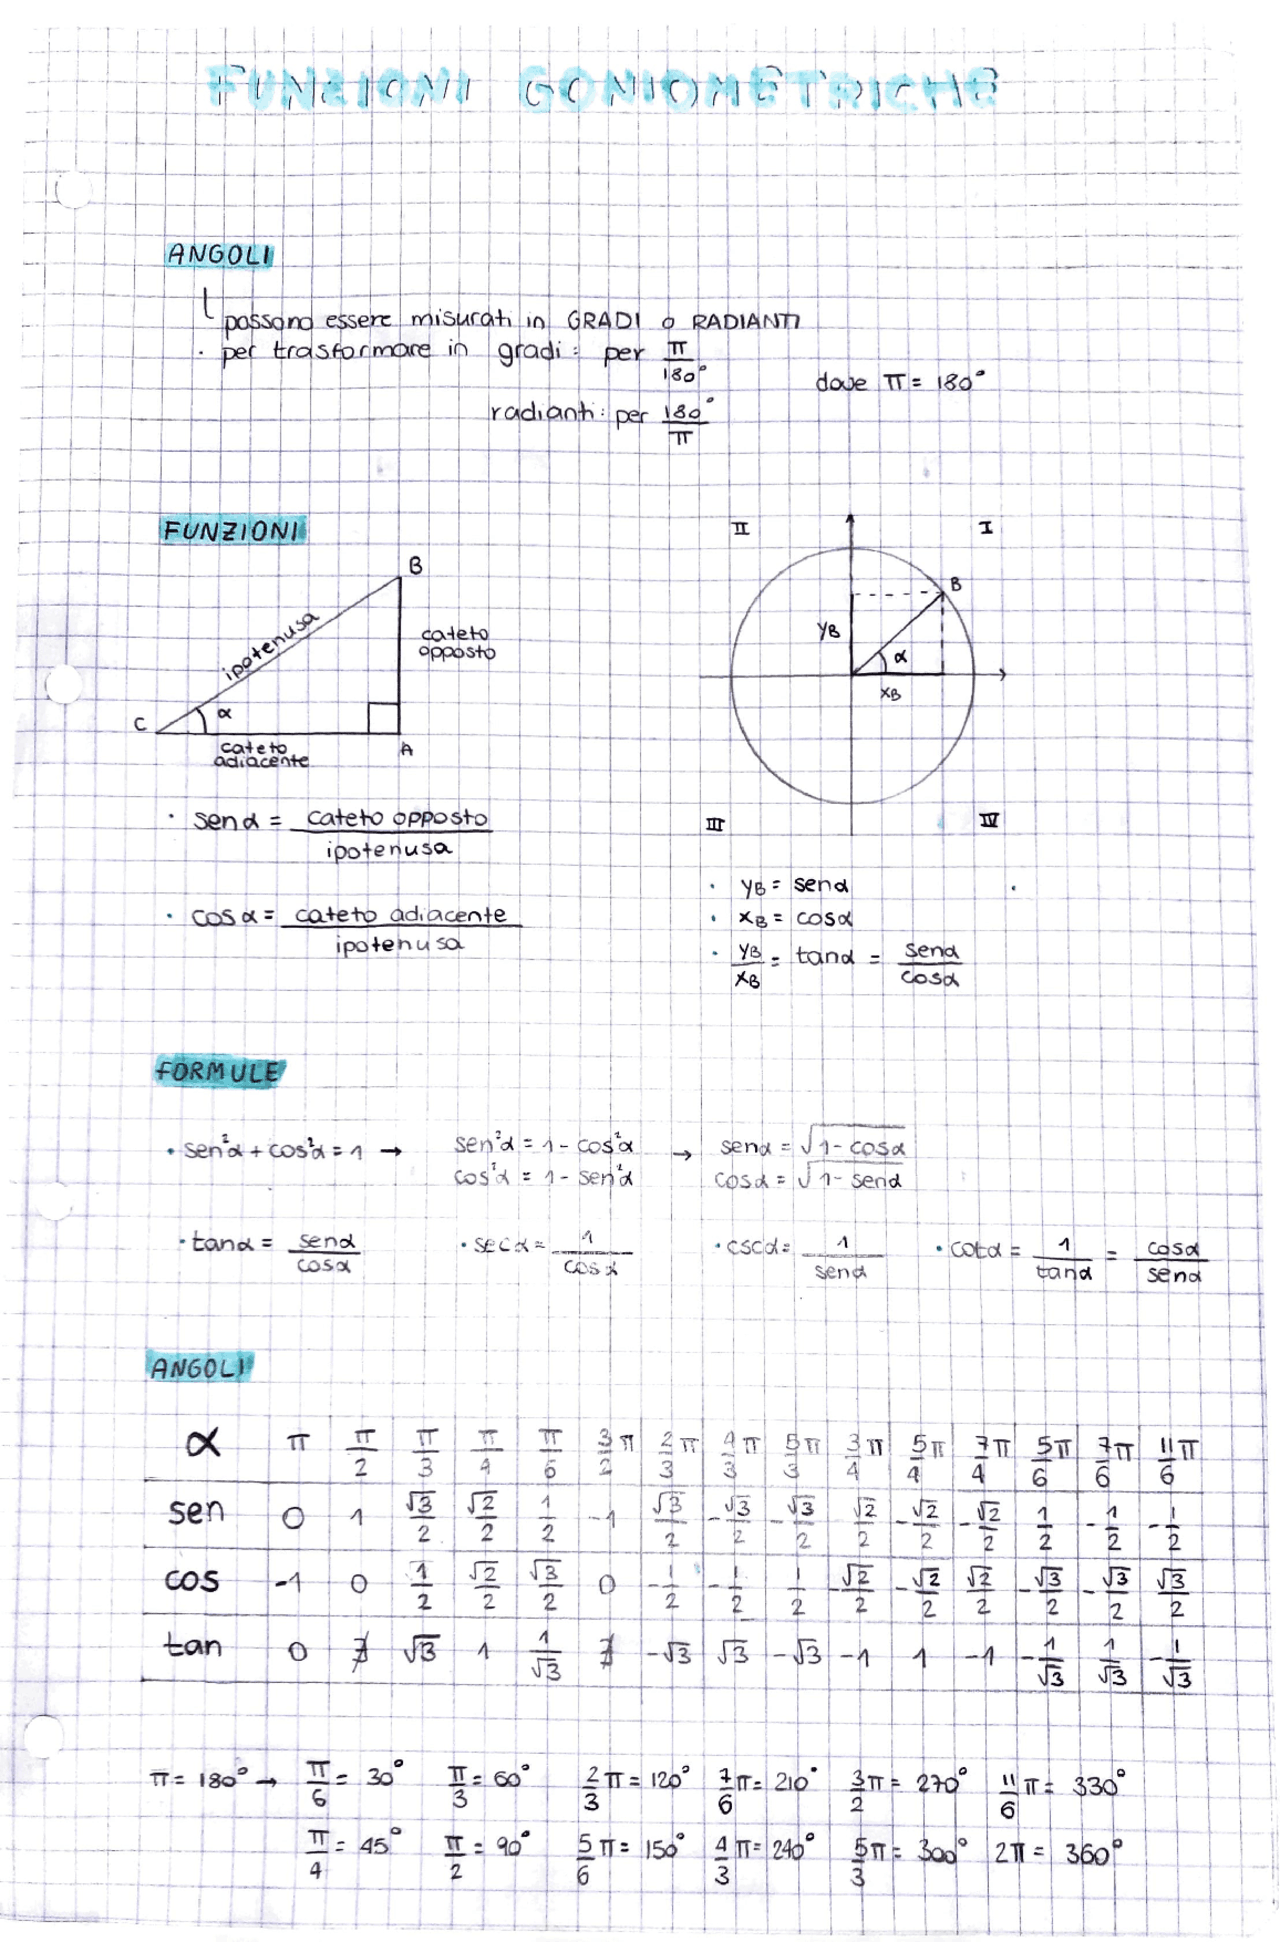 FUNZIONI GONIOMETRICHE
ANGOLI
possono essere misurati in GRADI o RADIANTI
· per trasformare in gradi: per π/180°
dove π = 180°
radianti: per 180°/π
FUNZIONI
B
ipotenusa
cateto
opposto
C
α
cateto
adiacente
A
II
I
B
yB
α
xB
III
IV
· senα = cateto opposto/ipotenusa
· cosα = cateto adiacente/ipotenusa
· yB = senα
· xB = cosα
· yB/xB = tanα = senα/cosα
FORMULE
· sen²α + cos²α = 1 → sen²α = 1 - cos²α → senα = √1 - cosα
cos²α = 1 - sen²α cosα = √1 - senα
· tanα = senα/cosα · secα = 1/cosα · cscα = 1/senα · cotα = 1/tanα = cosα/senα
ANGOLI
α π π/2 π/3 π/4 π/6 3/2 π 2/3 π 4/3 π 5/3 π 3/4 π 5/4 π 7/4 π 5/6 π 7/6 π 11/6 π
sen 0 1 √3/2 √2/2 1/2 -1 √3/2 -√3/2 -√3/2 √2/2 -√2/2 -√2/2 1/2 -1/2 -1/2
cos -1 0 1/2 √2/2 √3/2 0 -1/2 -1/2 1/2 -√2/2 -√2/2 √2/2 -√3/2 -√3/2 √3/2
tan 0 ∄ √3 1 1/√3 ∄ -√3 √3 -√3 -1 1 -1 -1/√3 1/√3 -1/√3
π = 180° → π/6 = 30° π/3 = 60° 2/3 π = 120° 7/6 π = 210° 3/2 π = 270° 11/6 π = 330°
π/4 = 45° π/2 = 90° 5/6 π = 150° 4/3 π = 240° 5/3 π = 300° 2π = 360°